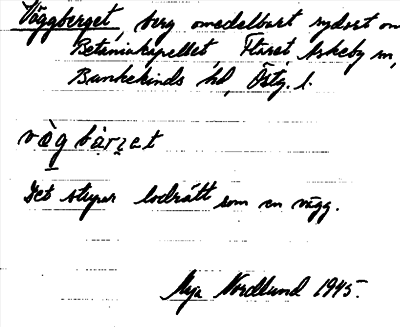 Väggberget, berg omedelbart sydost om
Betaniakapellet, Fluret, Askeby sn,
Bankekinds hd, Östg. l.
våg bàrzet
Det stupar lodrätt som en vägg.
Mya Nordlund 1945.